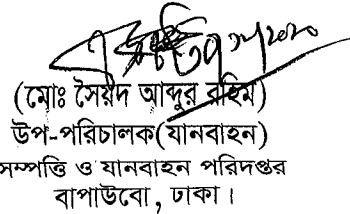 (মোঃ সৈয়দ আব্দুর রহিম)
উপ-পরিচালক(যানবাহন)
সম্পত্তি ও যানবাহন পরিদপ্তর
বাপাউবো, ঢাকা।